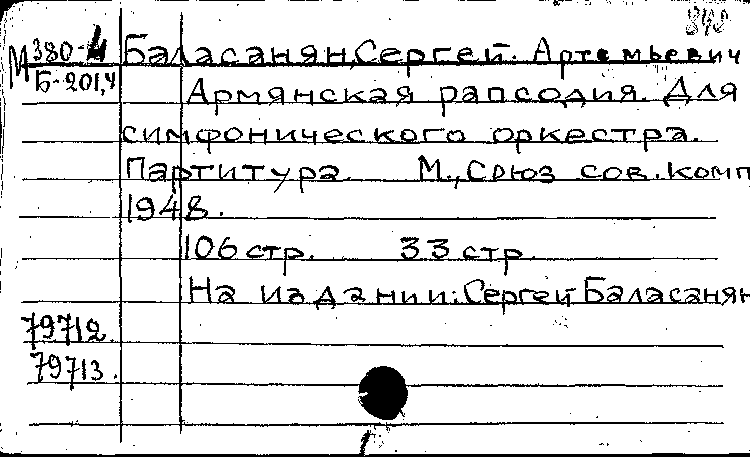 848
М 380-4 Баласанян, Сергей. Артемьевич
Б-201,4
Армянская рапсодия. Для
симфонического оркестра.
Партитура М., Союз сов. комп
1948.
106 стр. 33 стр.
На издании: Сергей Баласанян
79712.
79713.